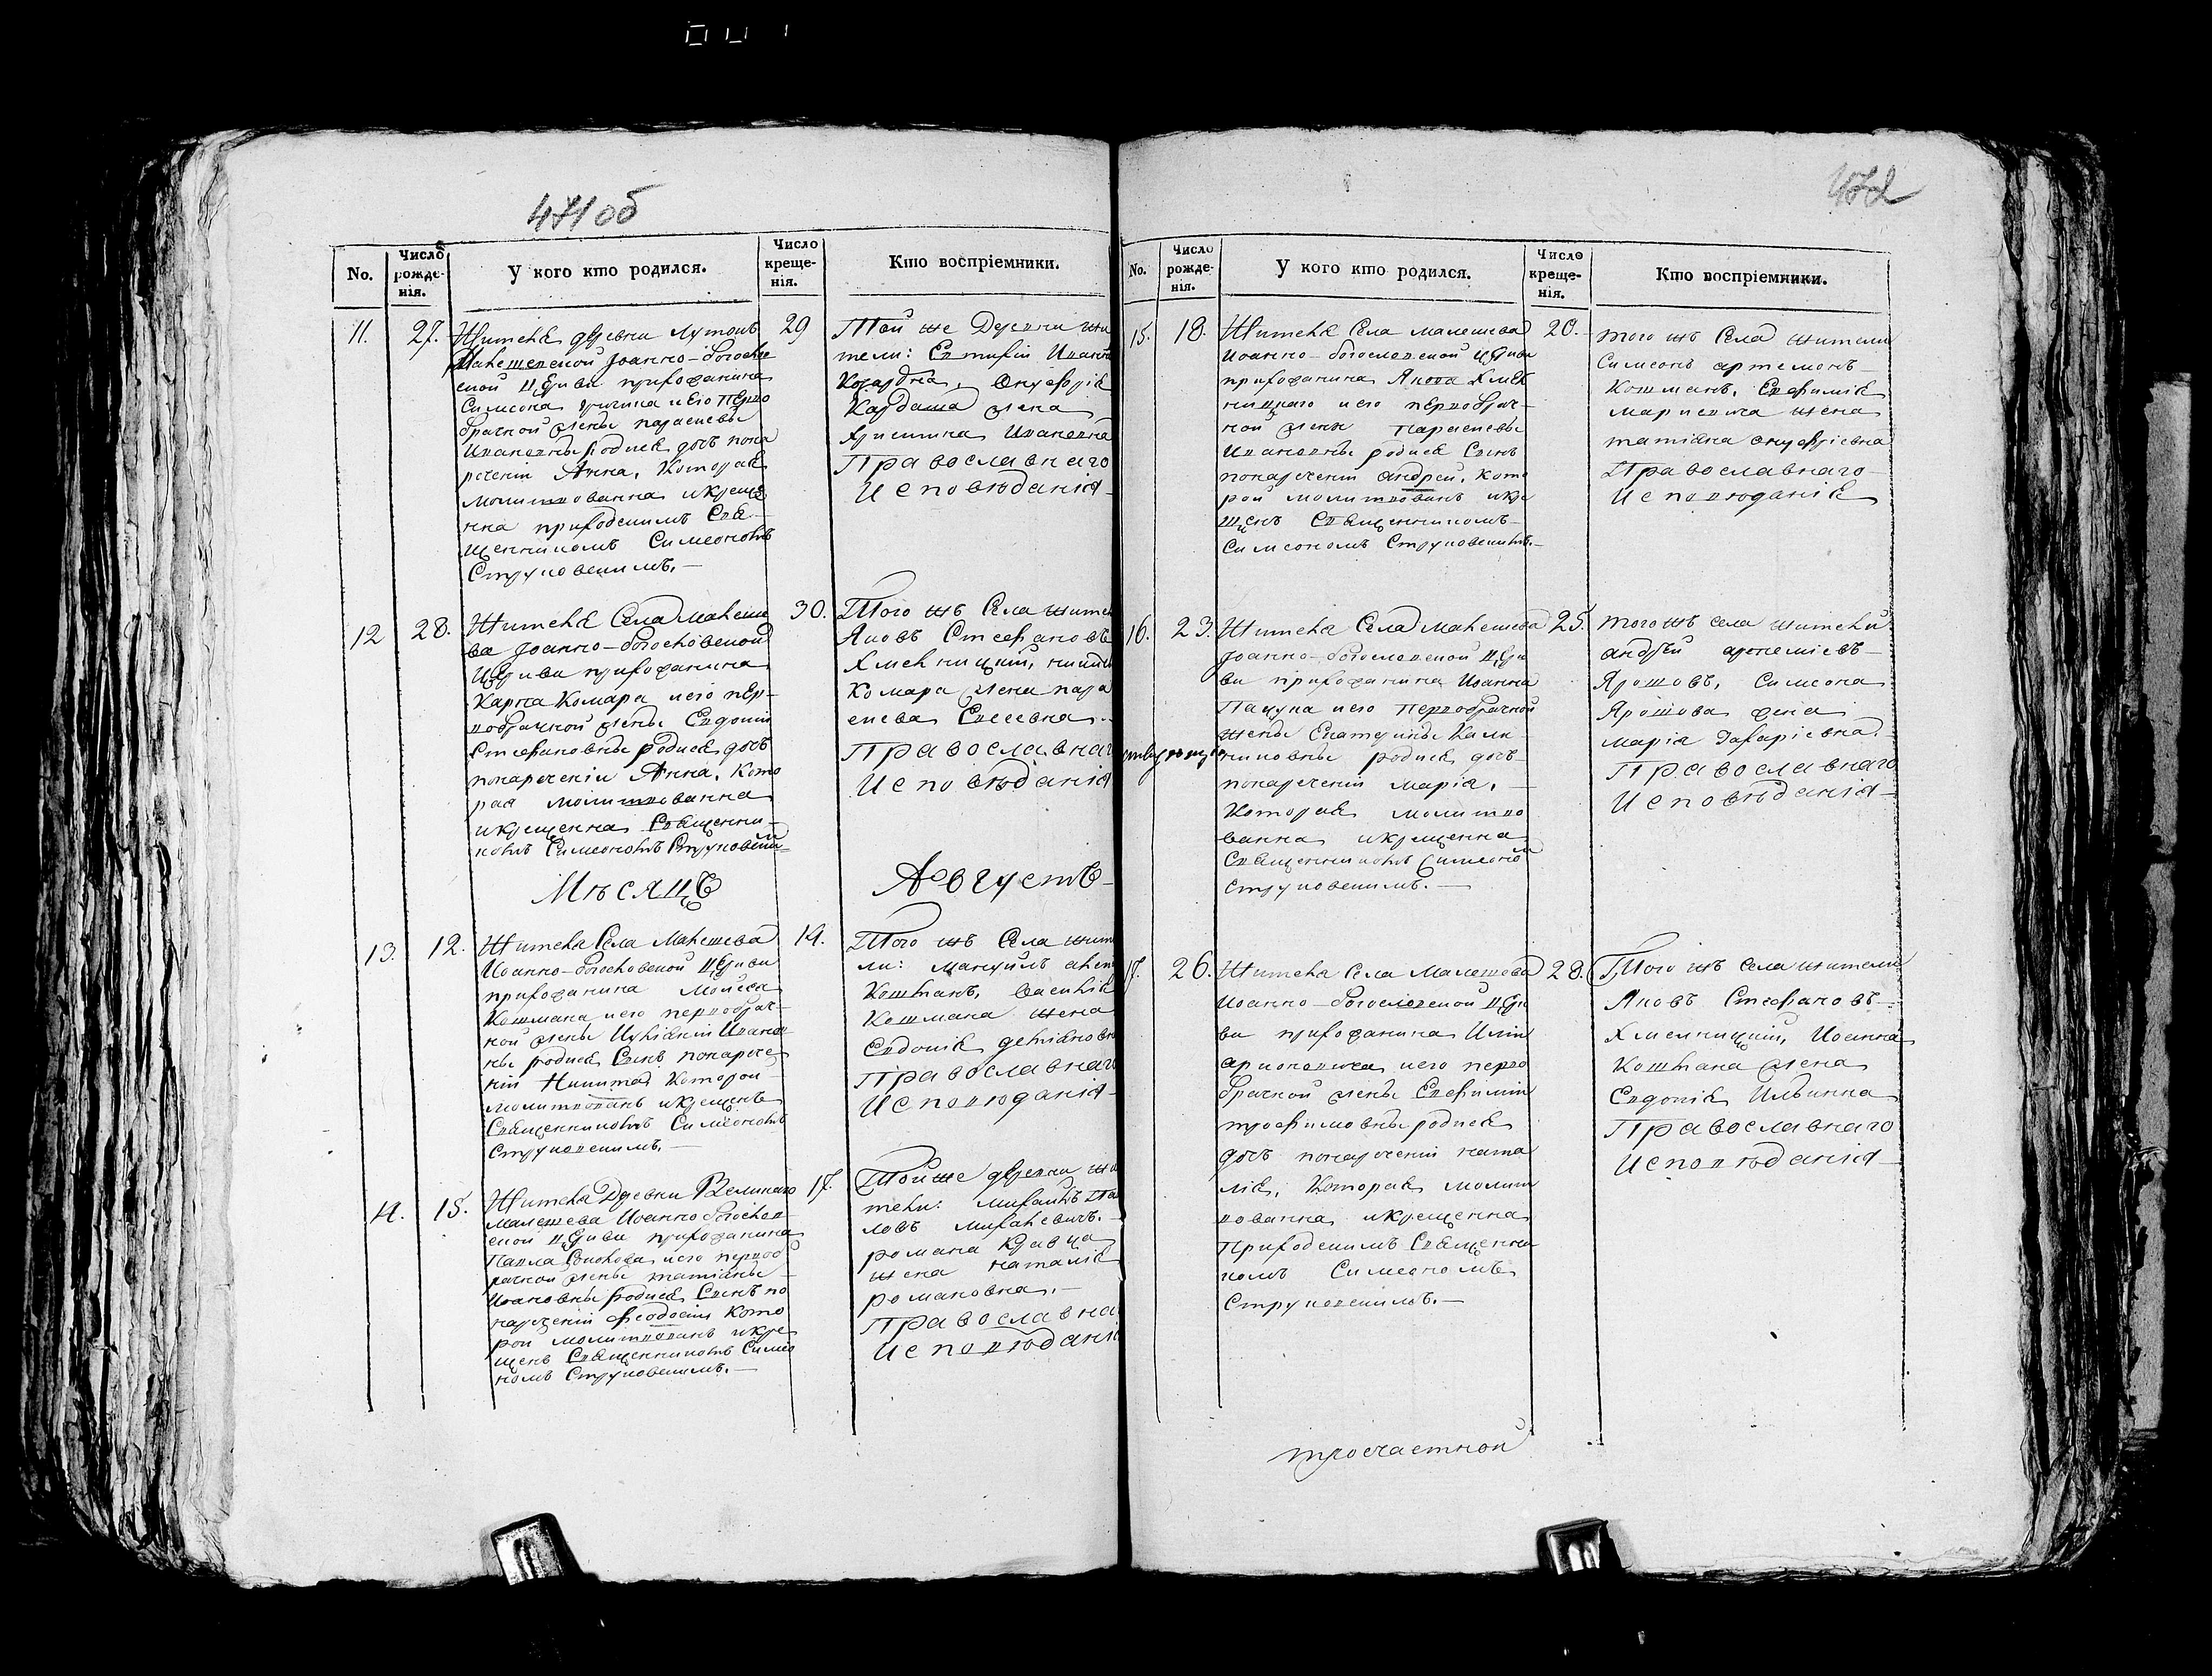 471 об
No.
Число рожде-нія.
У кого кто родился.
Число креще-нія.
Кто воспріемники.
11.
27.
Жителя деревни Лутовъ
Іоанно-богосло
ской Церкви прихожанина
Симеона и его перво
брачной жены параскевы
Ивановны родися дочъ пона
речении Анна, Которая
молитвованна и креще
нна приходскимъ Свя-
щенникомъ Симеономъ
Струковскимъ.—
29
Той же Деревни жи
тели: Евтифій Иванов
Онуфрія
Кардаша жена
Христина Ивановна
Православнаго
Исповѣданія
12
28.
Жителя Села Малеше
ва Іоанно-богословской
Церкви прихожанина
Карпа Комара и его пер-
вобрачной жены Евдокіи
Стефановны родися дочъ
понаречении Анна, Кото
рая молитвованна
и крещенна Священни-
комъ Симеономъ Струковским
30.
Того жъ Села жител
Яковъ Стефановъ
Хмелницкій,
Комара жена пара
скева Евсевна.
Православнаг
Исповѣданія
Мѣсяцъ
Августъ
13.
12.
Жителя Села Малешева
Иоанно-богословской Церкви
прихожанина Мойсея
Кошмана и его первобрач-
ной жены Иуліаніи Иванов
ны родися Сынъ понарече
ніи Никита Которой
молитвованъ и крещенъ
Священникомъ Симеономъ
Струковскимъ.—
14.
Того жъ Села жит
ли: Мануилъ
Кошманъ, Василія
Кошмана жена
Евдокія деміяновн
Православнаг
Исповѣданія
14.
15.
Жителя Деревни Великаго
Малешева Иоанно богослов
ской Церкви прихожанина
Павла и его первоб
рачной жены татіаны
Иоановны родися Сынъ по
нареченіи Феодосій Кото
рой молитвованъ и кре
щенъ Священникомъ Симео
номъ Струковскимъ.—
17.
Той же деревни жи
тели: Михаилъ Пав
ловъ Михалевичъ.
романа Кравца
жена наталія
романовна.—
Православна
Исповѣдані
472
No.
Число рожде-нія.
У кого кто родился.
Число креще-нія.
Кто воспріемники.
15.
18.
Жителя Села Малешева
Иоанно-богословской Церкви
прихожанина Якова Хмел
ницкаго и его первобрач-
ной жени Параскевы
Ивановны родися Сынъ
понаречении андрей, кото
рой молитвованъ и кре
щенъ Священникомъ
Симеономъ Струковскимъ.—
20.
того жъ Села жители
Симеонъ артемовъ
Кошманъ, Евфимія
жена
татіана онуфріевна
Православнаго
Исповѣданія
16.
23.
Жителя Села Малешева
Іоанно-богословской Церк
ви прихожанина Иоанна
Пацука и его первобрачной
жены Екатерины Кали
никовны родися дочъ
понаречении Марія,—
Которая молитво
ванна и крещенна
Священникомъ Симеоно
Струковскимъ.—
25.
того жъ села жители
андрѣй артеміевъ
Ярошовъ, Симеона
Ярошова жена
марія Захаріевна.
Православнаго
Исповѣданія
17.
26.
Жителя Села Малешева
Иоанно-богословской Церк
ви прихожанина Иліи
и его перво
брачной жены Евфиміи
трофимовны родися
дочъ понаречении ната
лія, Которая молит
вованна и крещенна
Приходскимъ Священни
комъ Симеономъ
Струковскимъ.—
28.
Того жъ Села жители
Яковъ Стефановъ
Хмелницкій, Иоанна
Кошмана жена
Евдокія Ильинна
Православнаго
Исповѣданія
троечастной